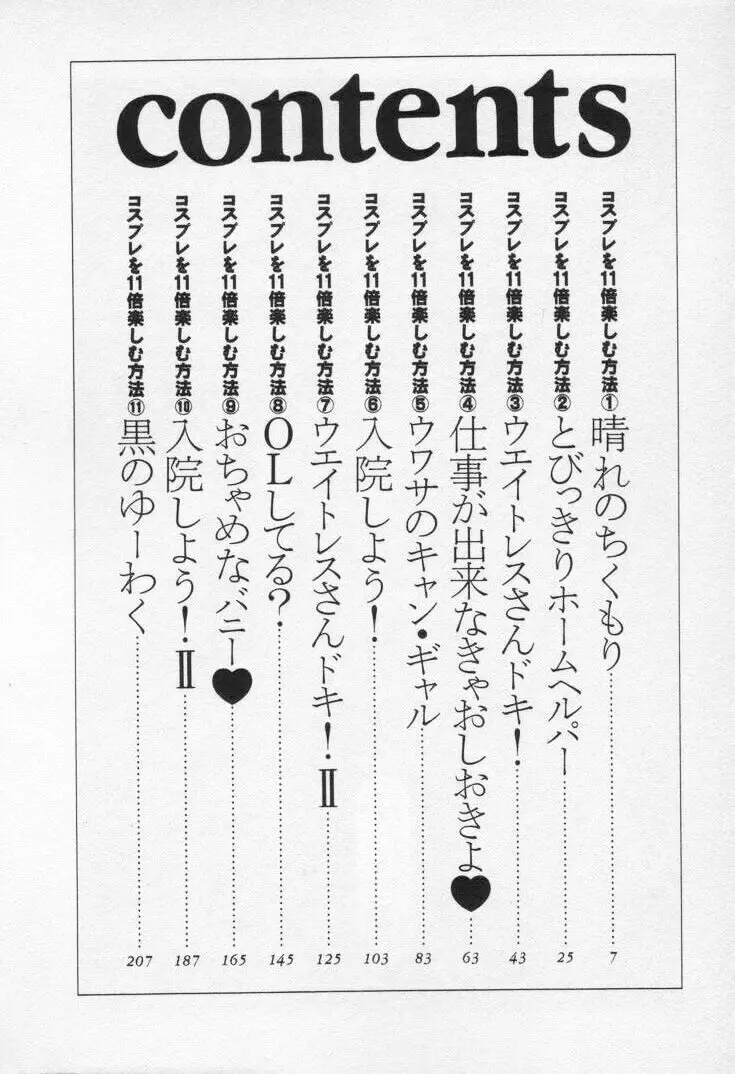 contents
コスプレを11倍楽しむ方法① 晴れのちくもり 7
コスプレを11倍楽しむ方法② とびっきりホームヘルパー 25
コスプレを11倍楽しむ方法③ ウエイトレスさんドキ! 43
コスプレを11倍楽しむ方法④ 仕事が出来なきゃおしおきよ♥ 63
コスプレを11倍楽しむ方法⑤ ウワサのキャン・ギャル 83
コスプレを11倍楽しむ方法⑥ 入院しよう! 103
コスプレを11倍楽しむ方法⑦ ウエイトレスさんドキ! II 125
コスプレを11倍楽しむ方法⑧ OLしてる? 145
コスプレを11倍楽しむ方法⑨ おちゃめなバニー♥ 165
コスプレを11倍楽しむ方法⑩ 入院しよう! II 187
コスプレを11倍楽しむ方法⑪ 黒のゆーわく 207